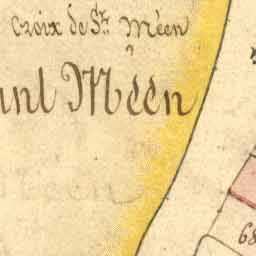 Croix de St. Méen
int Méèn
68